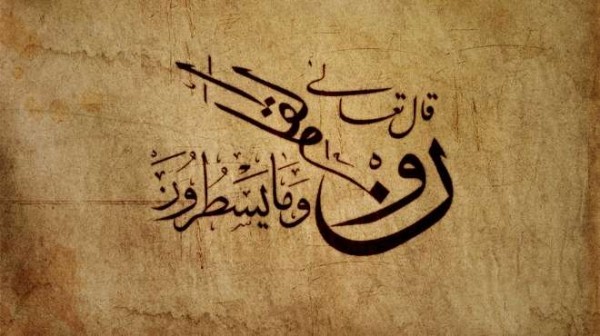 قال تعالى
ن والقلم
وَمَا يَسْطُرُونَ